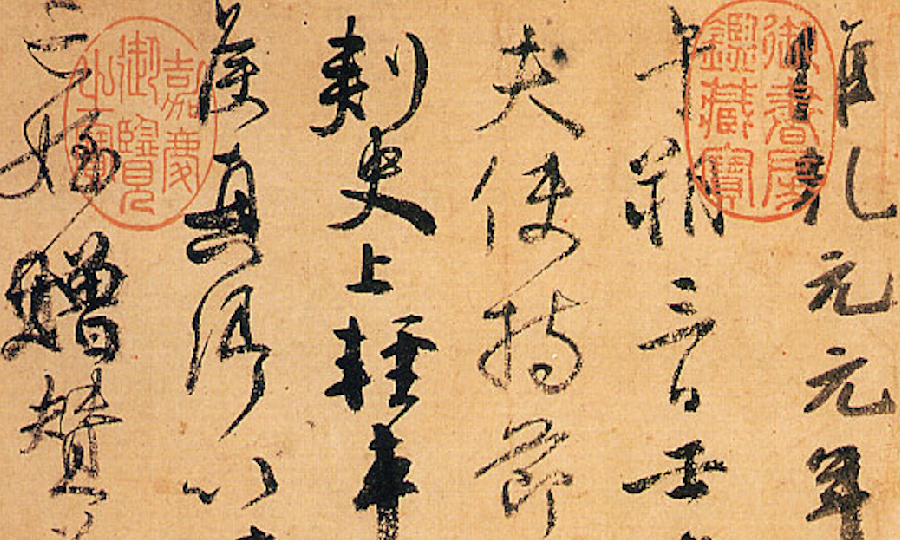 維乾元元年
午朔三日壬
夫使持節
刺史上輕車
侯真卿以
亡姪贈贊
御書房鑑藏寶
嘉慶御覽之寶